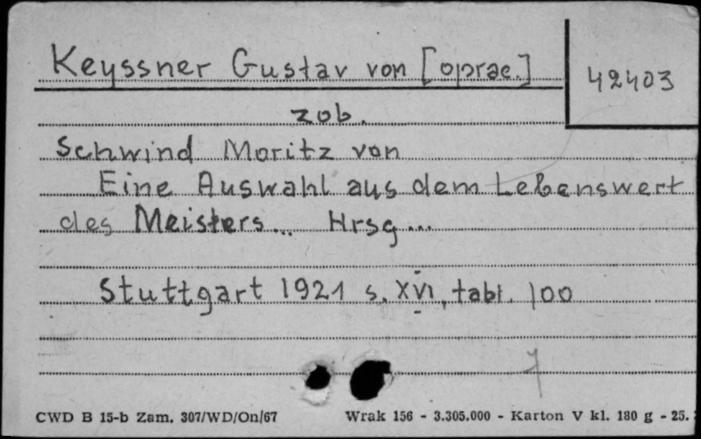 Keyssner Gustav von [oprac.]
42403
zob.
Schwind Moritz von
Eine Auswahl aus dem Lebenswert
des Meisters... Hrsg...
Stuttgart 1921 s. XVI, tabl. 100
CWD B 15-b Zam. 307/WD/On/67
Wrak 156 - 3.305.000 - Karton V kl. 180 g - 25.